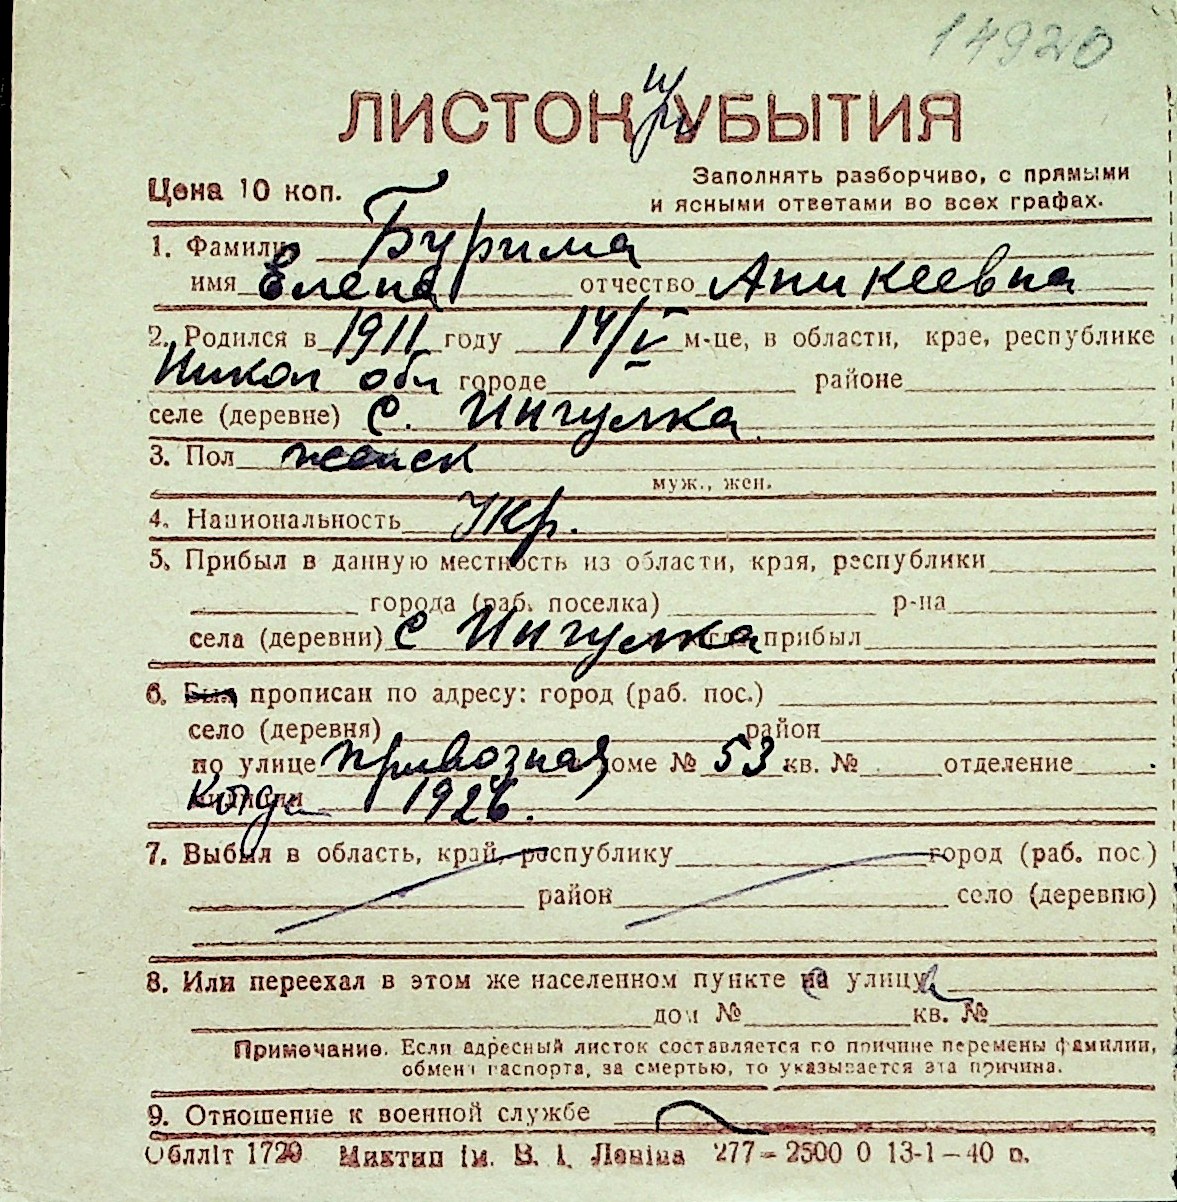 14920
ЛИСТОК при УБЫТИЯ
Цена 10 коп.
Заполнять разборчиво, с прямыми
и ясными ответами во всех графах.
1. Фамилия Бурима
имя Елена отчество Аникеевна
2. Родился в 1911 году 14/V м-це, в области, крае, республике
Никол обл городе районе
селе (деревне) с. Ингулка
3. Пол женск
муж., жен.
4. Национальность Укр.
5. Прибыл в данную местность из области, края, республики
города (раб. поселка) р-на
села (деревни) с Ингулка прибыл
6. Был прописан по адресу: город (раб. пос.)
село (деревня) район
по улице привозная доме № 53 кв. № отделение
когда 1926.
7. Выбыл в область, край, республику город (раб. пос.)
район село (деревню)
8. Или переехал в этом же населенном пункте с улицы
дом № кв. №
Примечание. Если адресный листок составляется по причине перемены фамилии,
обмена паспорта, за смертью, то указывается эта причина.
9. Отношение к военной службе
Облліт 1720 Миктип ім. В. І. Леніна 277–2500 0 13-1–40 р.